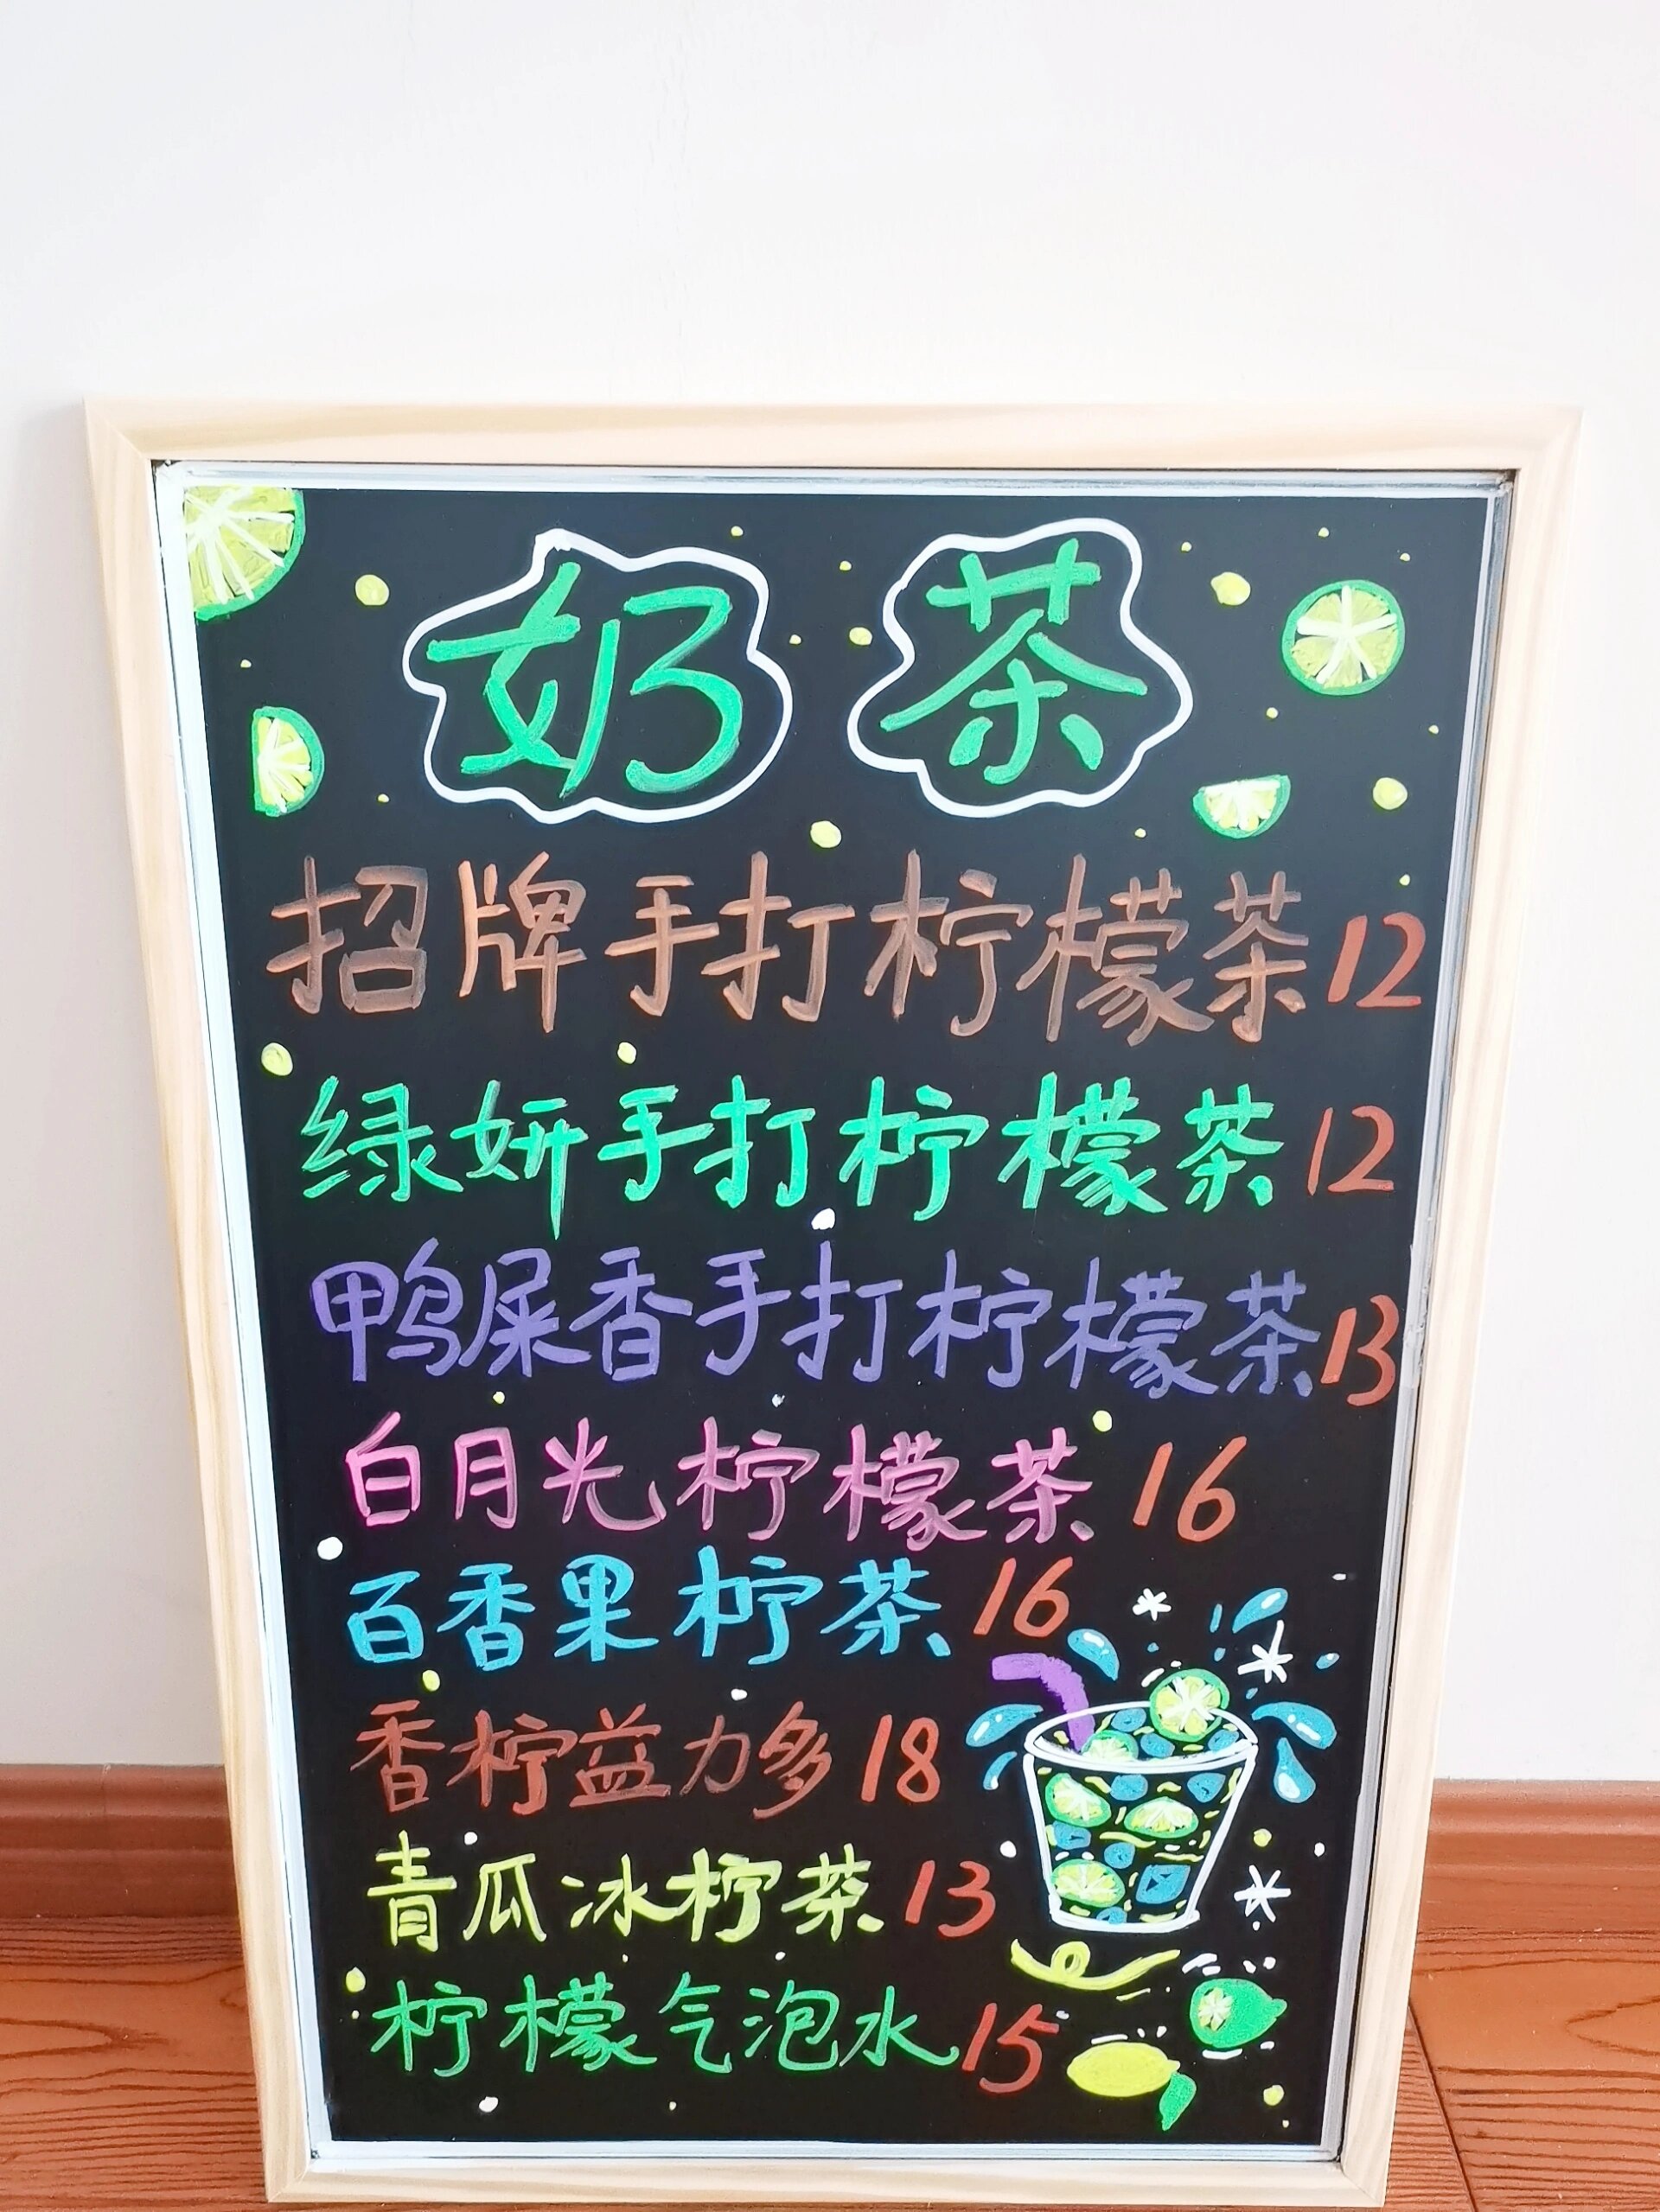 奶茶
招牌手打柠檬茶12
绿妍手打柠檬茶12
鸭屎香手打柠檬茶13
白月光柠檬茶16
百香果柠茶16
香柠益力多18
青瓜冰柠茶13
柠檬气泡水15